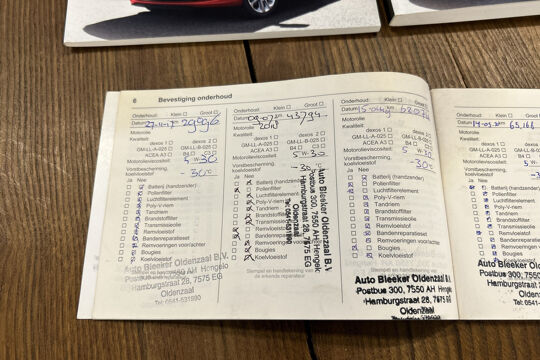 6 Bevestiging onderhoud
Onderhoud: Klein □ Groot
Datum 27-11-17 29996
Motorolie
Kwaliteit
dexos 1 □ dexos 2 □
GM-LL-A-025 □ GM-LL-B-025 □
ACEA A3 □ B4 □ C3
Motorolieviscositeit 5w30
Vorstbescherming, koelvloeistof -30°C
Ja Nee
Batterij (handzender)
Pollenfilter
Luchtfilterelement
Poly-V-riem
Tandriem
Brandstoffilter
Transmissieolie
Remvloeistof
Bandenreparatieset
Remvoeringen voor/achter
Bougies
Koelvloeistof
Auto Bleeker Oldenzaal B.V.
Postbus 300, 7550 AH Hengelo
Hamburgstraat 28, 7575 EG
Oldenzaal
Tel: 0541-531990
Onderhoud: Klein □ Groot
Datum 43794
Motorolie
Kwaliteit
dexos 1 □ dexos 2 □
GM-LL-A-025 □ GM-LL-B-025 □
ACEA A3 □ B4 □ C3
Motorolieviscositeit 5w30
Vorstbescherming, koelvloeistof -30
Ja Nee
Batterij (handzender)
Pollenfilter
Luchtfilterelement
Poly-V-riem
Tandriem
Brandstoffilter
Transmissieolie
Remvloeistof
Bandenreparatieset
Remvoeringen
Bougies
Koelvloeistof
Stempel en handtekening van de erkende reparateur
Auto Bleeker Oldenzaal B.V.
Postbus 300, 7550 AH Hengelo
Hamburgstraat 28, 7575 EG
Oldenzaal
Tel: 0541-531990
Onderhoud: Klein □ Groot
Datum
Motorolie
Kwaliteit
dexos 1 □ dexos 2 □
GM-LL-A-025 □ GM-LL-B-025 □
ACEA A3 □ B4 □ C3
Motorolieviscositeit 5w30
Vorstbescherming, koelvloeistof -30°C
Ja Nee
Batterij (handzender)
Pollenfilter
Luchtfilterelement
Poly-V-riem
Tandriem
Brandstoffilter
Transmissieolie
Remvloeistof
Bandenreparatieset
Remvoeringen voor/achter
Bougies
Koelvloeistof
Auto Bleeker Oldenzaal B.V.
Postbus 300, 7550 AH Hengelo
Hamburgstraat 28, 7575 EG
Oldenzaal
Onderhoud: Klein □
Datum
Motorolie
Kwaliteit
dexos 1 □
GM-LL-A-025 □
ACEA A3 □
Motorolieviscositeit
Vorstbescherming, koelvloeistof
Ja Nee
Batterij (handzender)
Pollenfilter
Luchtfilterelement
Poly-V-riem
Tandriem
Brandstoffilter
Transmissieolie
Remvloeistof
Bandenreparatieset
Remvoeringen
Bougies
Koelvloeistof
Auto Bleeker Oldenzaal
Postbus 300, 7550 AH
Hamburgstraat 28,
Oldenzaal
Tel: 0541-531990